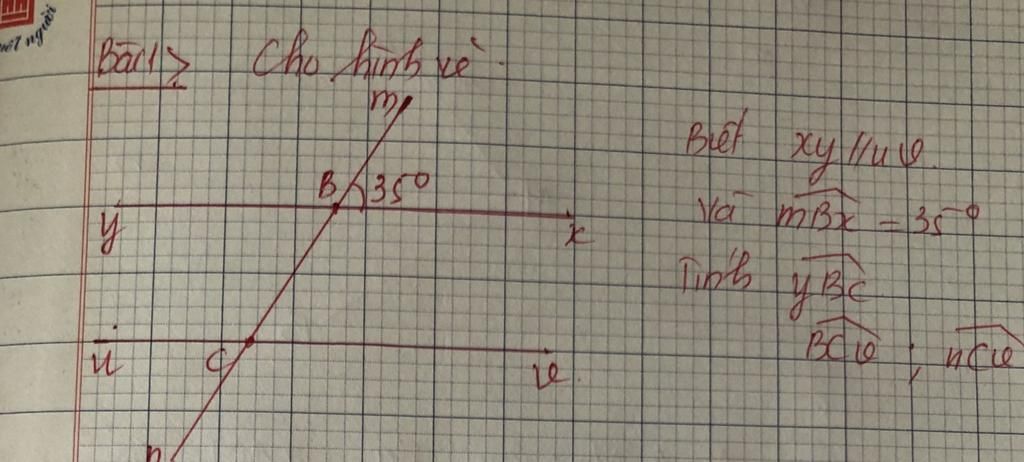 người
Bài 1> Cho hình vẽ.
m
B 35°
y x
u C v
n
Biết xy // uv.
Và mBx = 35°
Tính yBC
BCv ; nCv